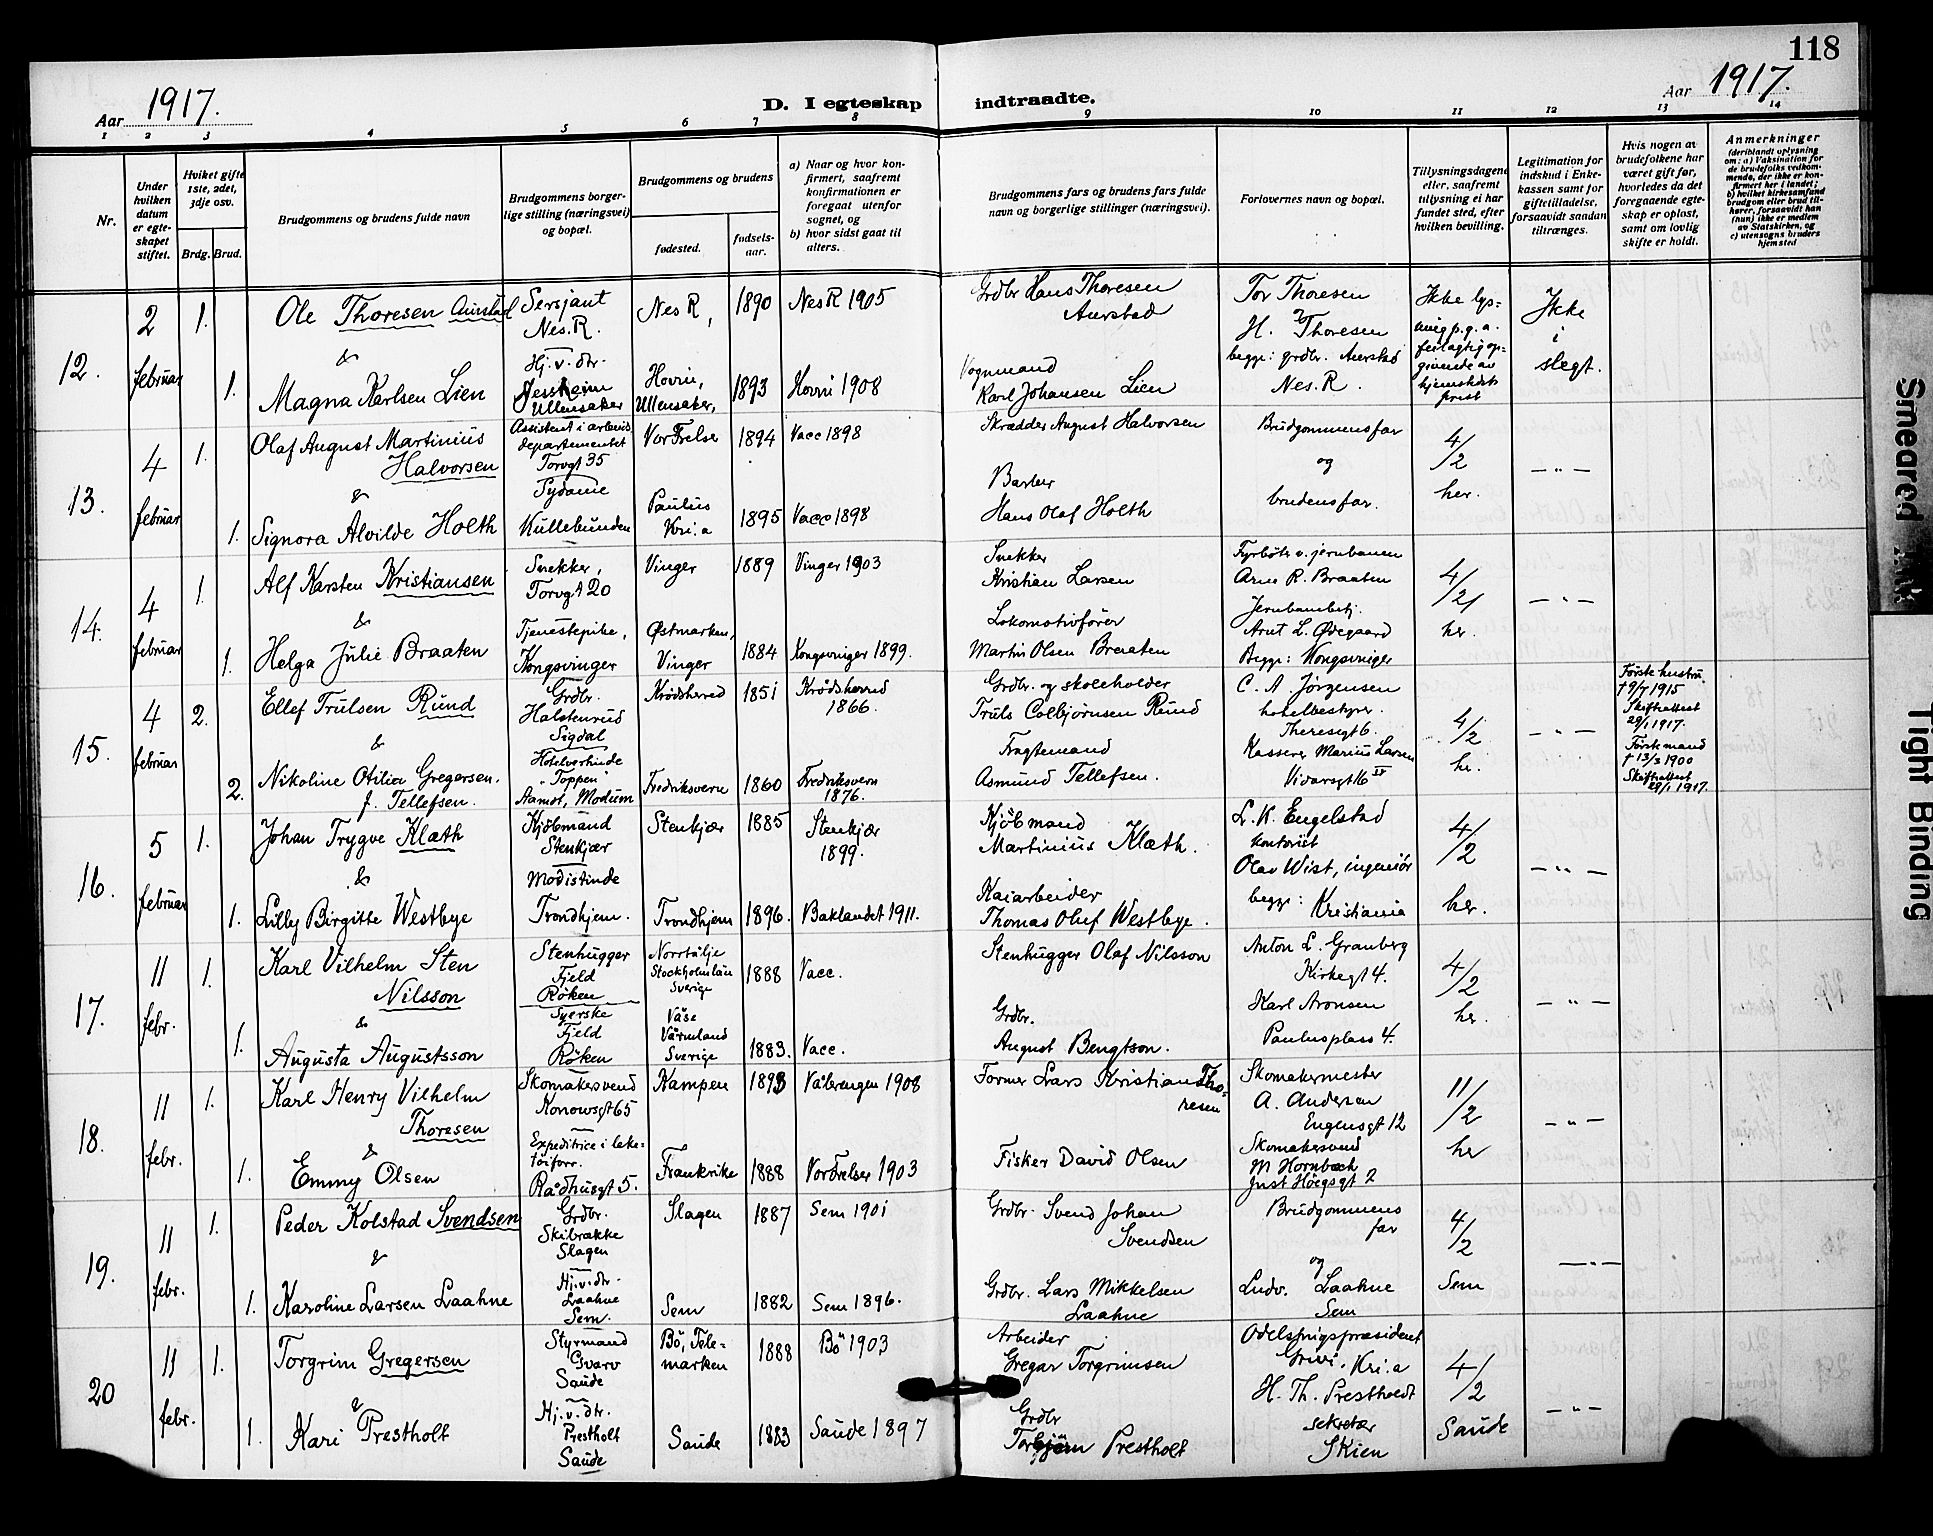 118
Aar 1917.
D. I egteskap indtraadte.
Aar 1917.
1 2 3 4 5 6 7 8 9 10 11 12 13 14
Nr.
Under hvilken datum er egteskapet stiftet.
Hvilket gifte 1ste, 2det, 3dje osv.
Brdg. Brud.
Brudgommens og brudens fulde navn
Brudgommens borgerlige stilling (næringsvei) og bopæl.
Brudgommens og brudens
fødested.
fødselsaar.
a) Naar og hvor konfirmert, saafremt konfirmationen er foregaat utenfor sognet, og
b) hvor sidst gaat til alters.
Brudgommens fars og brudens fars fulde navn og borgerlige stillinger (næringsvei).
Forlovernes navn og bopæl.
Tillysningsdagene eller, saafremt tillysning ei har fundet sted, efter hvilken bevilling.
Legitimation for indskud i Enkekassen samt for giftetilladelse, forsaavidt saadan tiltrænges.
Hvis nogen av brudefolkene har været gift før, hvorledes da det foregaaende egteskap er opløst, samt om lovlig skifte er holdt.
Anmerkninger (deriblandt oplysning om: a) Vaksination for de brudefolks vedkommende, der ikke er konfirmert her i landet; b) hvilket kirkesamfund brudgom eller brud tilhører, forsaavidt han (hun) ikke er medlem av Statskirken, og c) utensogns bruders hjemsted
12. 2 februar 1. Ole Thoresen Aurstad Sersjant Nes. R. Nes R, 1890 Nes R 1905 Grdbr Hans Thoresen Aurstad Tor Thoresen H. Thoresen begge: grdbr. Aurstad Nes. R. Ikke lysning p.g.a. feilagtig opgivende av hjemstedets prest Ikke i slegt.
&
1. Magna Karlsen Lien Hj. v. dtr. Jessheim Ullensaker Hovin, Ullensaker, 1893 Hovin 1908 Vognmand Karl Johansen Lien
13. 4 februar 1. Olaf August Martinius Halvorsen Assistent i arbeidsdepartementet Torvgt 35 Vor Frelser 1894 Vacc 1898 Skrædder August Halvorsen Brudgommens far og brudens far. 4/2 her. — " —
&
1. Signora Alvilde Holth Sydame Kullebunden Paulus Kri.a 1895 Vacc 1898 Barber Hans Olaf Holth
14. 4 februar 1. Alf Karsten Kristiansen Snekker, Torvgt 20 Vinger 1889 Vinger 1903 Snekker Kristian Larsen Fyrbøter v. jernbanen Arne R. Braaten Jernbanebetj. Arnt L. Ødegaard Begge: Kongsvinger 4/2 her. — " —
&
1. Helga Julie Braaten Tjenestepike, Kongsvinger Østmarken, Vinger 1884 Kongsvinger 1899. Lokomotivfører Martin Olsen Braaten
15. 4 februar 2. Ellef Trulsen Rund Grdbr. Halstenrud Sigdal Krødsherred 1851 Krødsherred 1866. Grdbr. og skoleholder Truls Colbjørnsen Rund C. A. Jørgensen hotelbestyrer. Theresegt 6. Kasserer Marius Larsen Vidarsgt 16 IV 4/2 her. — " — Første hustru † 9/7 1915 Skifteattest 29/1 1917. Første mand † 13/3 1900 Skifteattest 29/1 1917.
&
2. Nikoline Otilia Gregersen. f. Tellefsen. Hotelvertinde "Toppen" Aamot, Modum Fredriksvern 1860 Fredriksvern 1876. Fragtemand Asmund Tellefsen.
16. 5 februar 1. Johan Trygve Klæth Kjøbmand Stenkjær Stenkjær 1885 Stenkjær 1899. Kjøbmand Martinius Klæth. L. K. Engelstad kontorist Olav Wist, ingeniør begge: Kristiania 4/2 her. — " —
&
1. Lilly Birgitte Westbye Modistinde Trondhjem. Trondhjem 1896. Baklandet 1911. Kaiarbeider Thomas Oluf Westbye.
17. 11 febr. 1. Karl Vilhelm Sten Nilsson Stenhugger Fjeld Røken Norrtälje Stockholmlän Sverige 1888 Vacc. Stenhugger Olaf Nilsson Anton L. Granberg Kirkegt 4. Karl Aronsen Paulusplass 4. 4/2 her. — " —
&
1. Augusta Augustsson Syerske Fjeld Røken Våse Värmland Sverige 1883. Vacc. Grdbr. August Bengtson.
18. 11 febr. 1. Karl Henry Vilhelm Thoresen Skomakersvend Konowsgt 65 Kampen 1893 Vålerengen 1908 Former Lars Kristian Thoresen Skomakermester A. Andersen Eugensgt 12 Skomakersvend M Hornbæck Just Høegsgt 2 11/2 her — " —
&
1. Emmy Olsen Expeditrice i leketøiforr. Rådhusgt 5. Frankrike 1888 Vor Frelser 1903 Fisker David Olsen
19. 11 febr. 1. Peder Kolstad Svendsen Grdbr. Skibrække Slagen Slagen 1887 Sem 1901 Grdbr. Svend Johan Svendsen Brudgommens far og Ludv. Laahne Sem 4/2 Sem — " —
&
1. Karoline Larsen Laahne Hj. v. dtr. Laahne Sem. Sem 1882 Sem 1896. Grdbr. Lars Mikkelsen Laahne
20 11 febr. 1. Torgrim Gregersen Styrmand Gvarv Saude Bø, Telemarken 1888 Bø 1903 Arbeider Gregar Torgrimsen Odelstingspræsident Grivi, Kri.a H. Th. Prestholdt sekretær Skien 4/2 Saude — " —
&
1. Kari Prestholt Hj. v. dtr. Prestholt Saude Saude 1883 Saude 1897 Grdbr Torbjørn Prestholt
Smeared Ink
Tight Binding